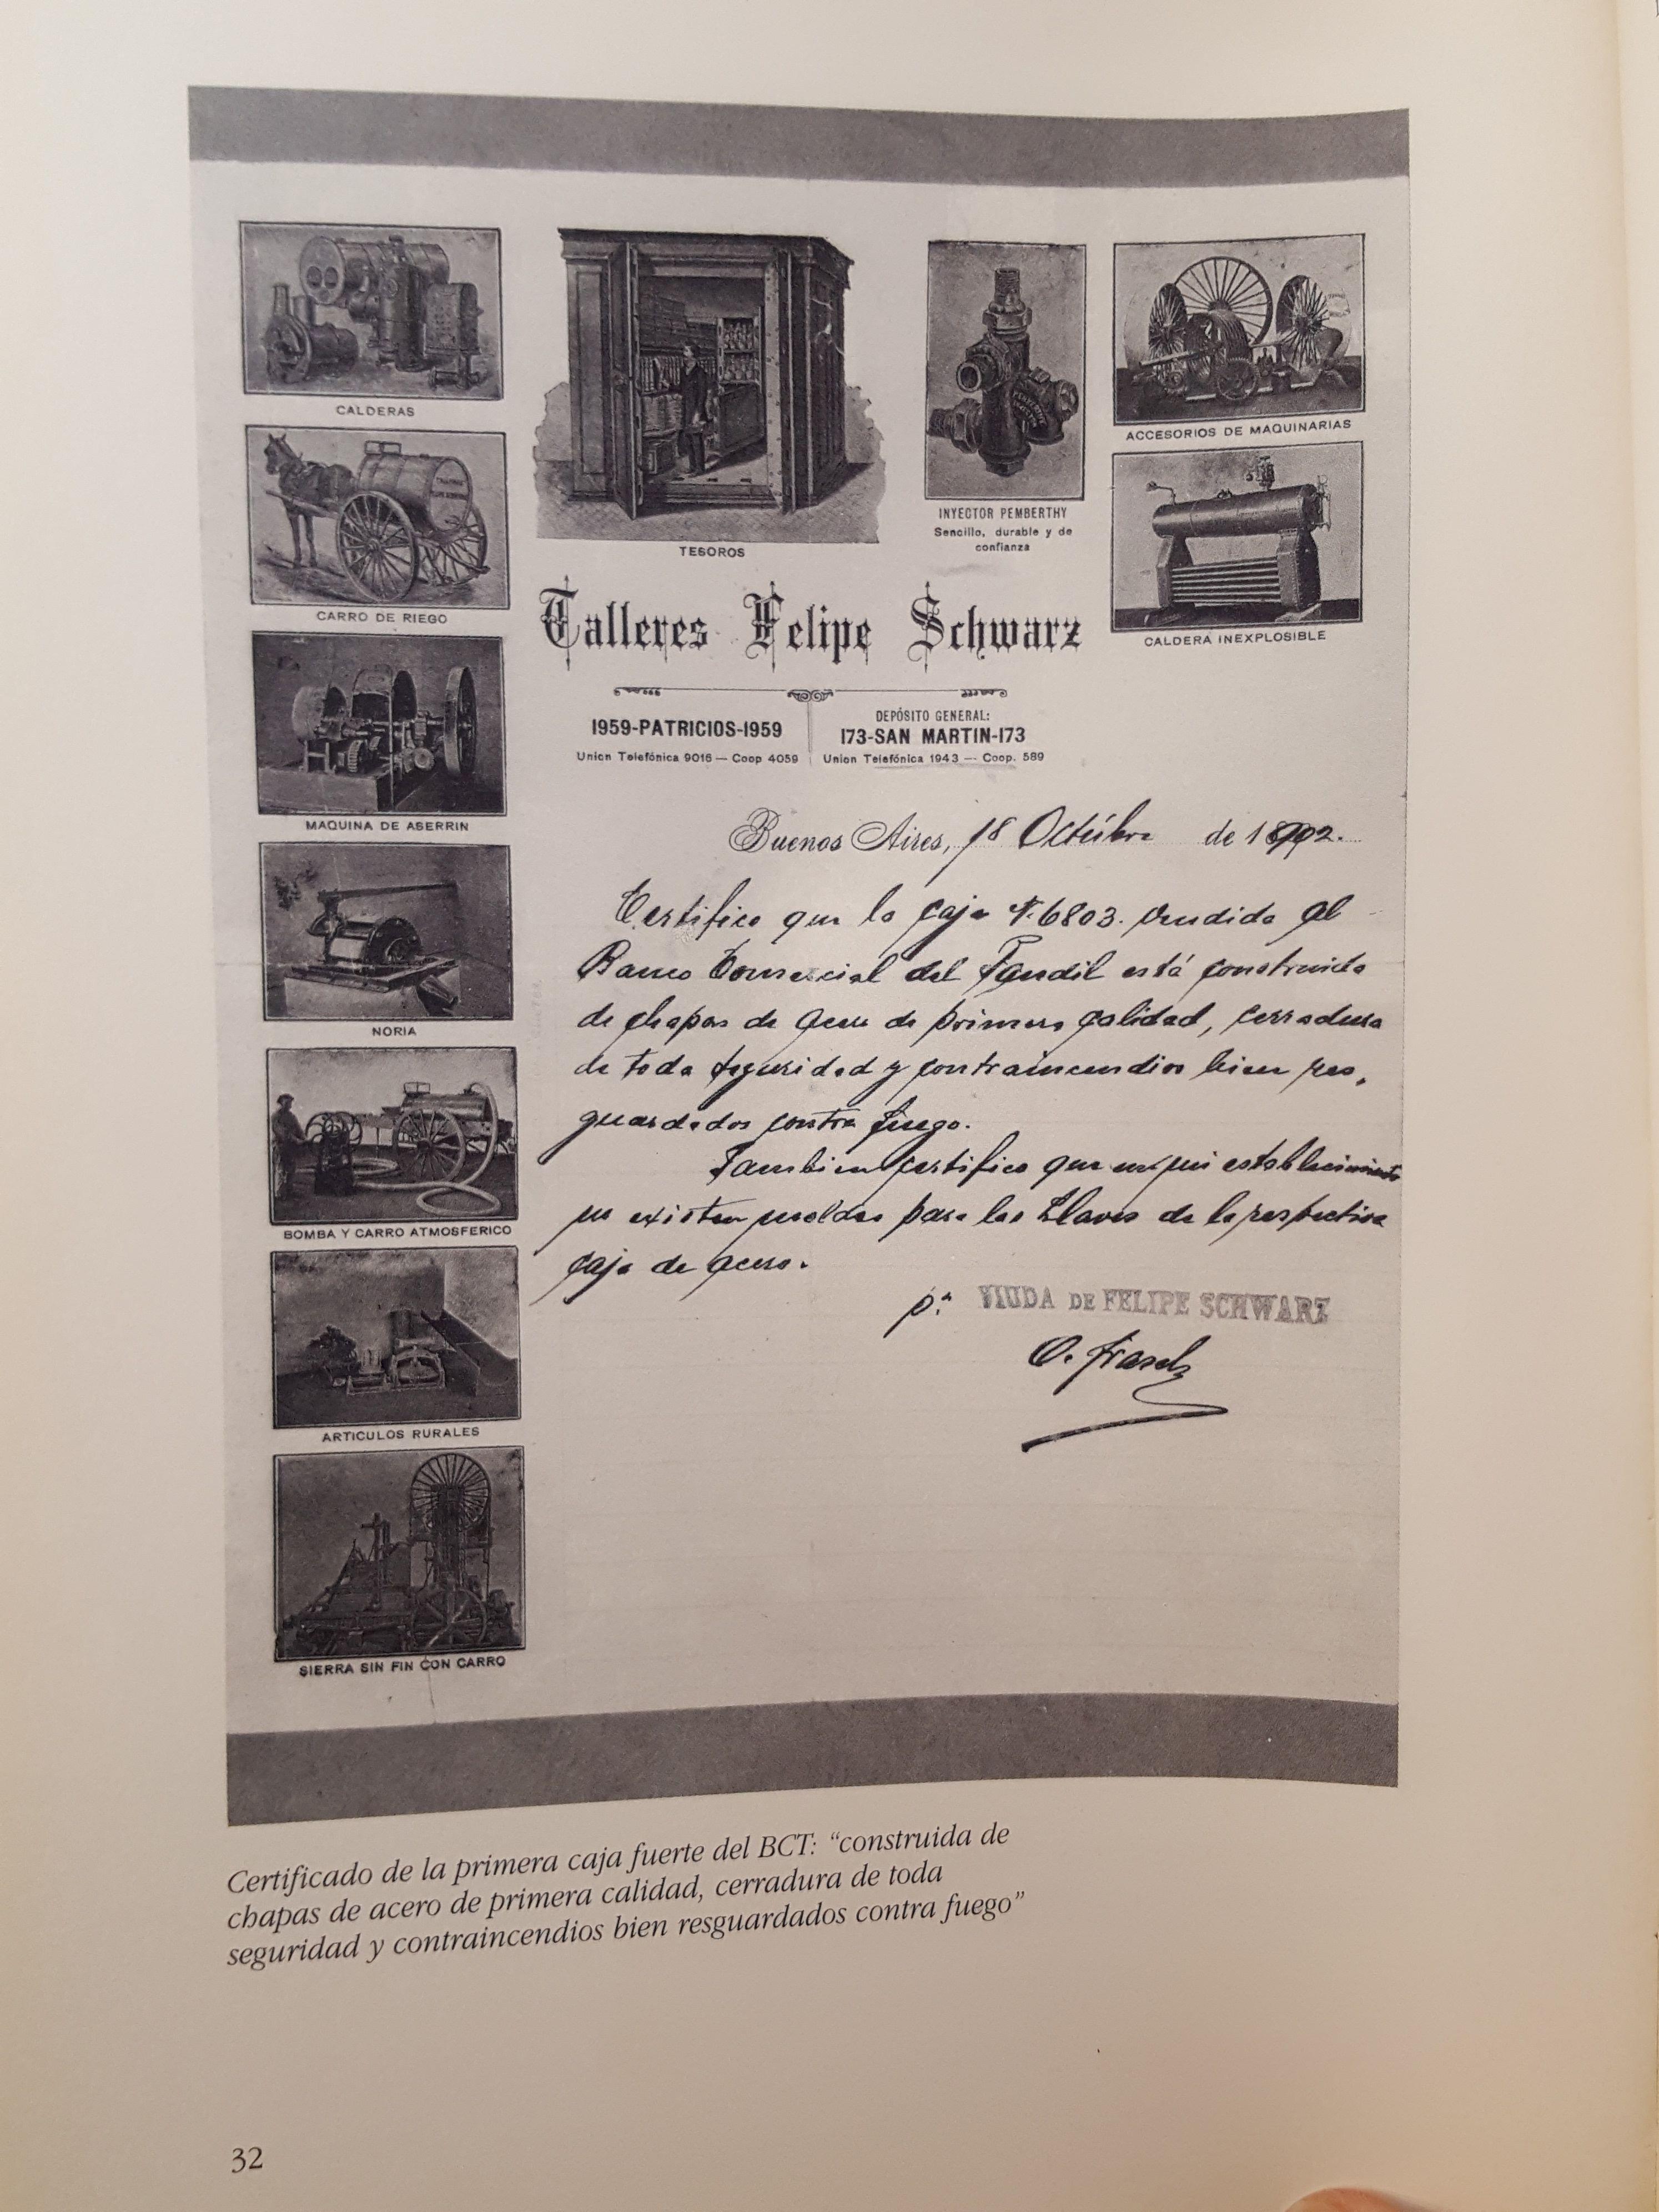 CALDERAS
CARRO DE RIEGO
MAQUINA DE ASERRIN
NORIA
BOMBA Y CARRO ATMOSFERICO
ARTICULOS RURALES
SIERRA SIN FIN CON CARRO
TESOROS
INYECTOR PEMBERTHY
Sencillo, durable y de
confianza
ACCESORIOS DE MAQUINARIAS
CALDERA INEXPLOSIBLE
Talleres Felipe Schwarz
1959-PATRICIOS-1959
Union Telefónica 9016 — Coop 4059
DEPÓSITO GENERAL:
173-SAN MARTIN-173
Union Telefónica 1943 — Coop. 589
Buenos Aires, 18 Octúbre de
Certifico que la caja N. 6803. vendida al
Banco Comercial del Tandil está construida
de chapas de acero de primera calidad, cerradura
de toda seguridad y contraincendios bien res,
guardados contra fuego.
Tambien certifico que en mi establecimiento
no existen moldes para las llaves de la respectiva
caja de acero.
p.ª VIUDA DE FELIPE SCHWARZ
O.
Certificado de la primera caja fuerte del BCT: “construida de
chapas de acero de primera calidad, cerradura de toda
seguridad y contraincendios bien resguardados contra fuego”
32